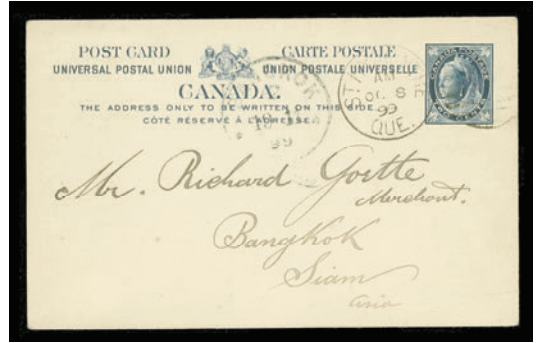 POST CARD CARTE POSTALE
UNIVERSAL POSTAL UNION UNION POSTALE UNIVERSELLE
CANADA.
THE ADDRESS ONLY TO BE WRITTEN ON THIS SIDE.
CÔTÉ RÉSERVÉ À L'ADRESSE.
CANADA POSTAGE
TWO CENTS
AM
OC 8
99
QUE.
99
Mr. Richard Goette
Merchant.
Bangkok
Siam
Asia